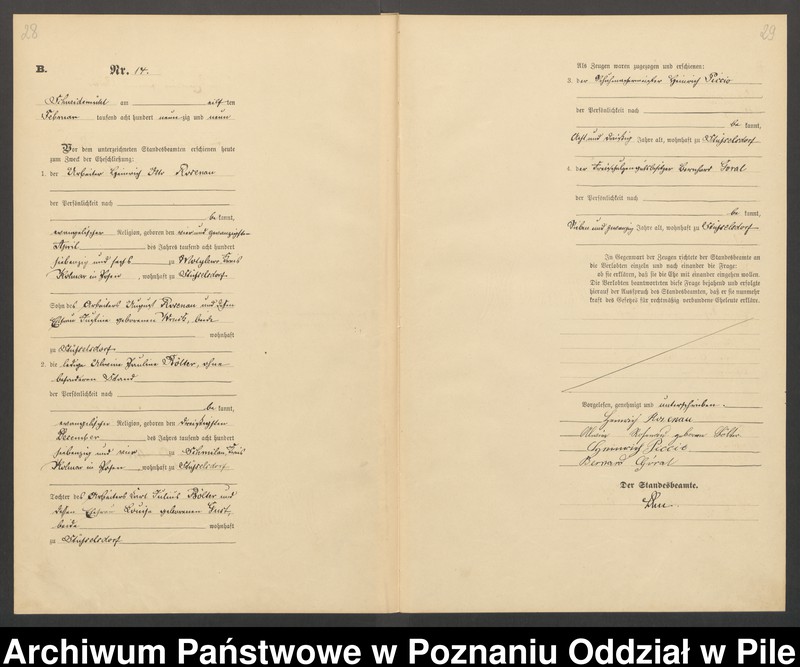 28
B.
Nr. 14.
Schneidemühl am elften
Februar tausend acht hundert neunzig und neun
Vor dem unterzeichneten Standesbeamten erschienen heute
zum Zweck der Eheschließung:
1. der Arbeiter Heinrich Otto Rosenau
der Persönlichkeit nach
bekannt,
evangelischer Religion, geboren den vier und zwanzigsten
April des Jahres tausend acht hundert
siebenzig und sechs zu Kreis
Kolmar in Posen, wohnhaft zu Stüsselsdorf
Sohn des Arbeiters August Rosenau und dessen
Ehefrau geborenen beide
wohnhaft
zu Stüsselsdorf
2. die ledige Alwine Pauline Bölter, ohne
besonderen Stand
der Persönlichkeit nach
bekannt,
evangelischer Religion, geboren den dreißigsten
December des Jahres tausend acht hundert
siebenzig und vier zu Schmilau Kreis
Kolmar in Posen, wohnhaft zu Stüsselsdorf
Tochter des Arbeiters Carl Julius Bölter und
dessen Ehefrau Louise geborenen
beide wohnhaft
zu Stüsselsdorf
29
Als Zeugen waren zugezogen und erschienen:
3. der Schuhmachermeister Heinrich Piccio
der Persönlichkeit nach
bekannt,
Acht und dreißig Jahre alt, wohnhaft zu Stüsselsdorf
4. der Bernhard Goral
der Persönlichkeit nach
bekannt,
Sieben und zwanzig Jahre alt, wohnhaft zu Stüsselsdorf
In Gegenwart der Zeugen richtete der Standesbeamte an
die Verlobten einzeln und nach einander die Frage:
ob sie erklären, daß sie die Ehe mit einander eingehen wollen.
Die Verlobten beantworteten diese Frage bejahend und erfolgte
hierauf der Ausspruch des Standesbeamten, daß er sie nunmehr
kraft des Gesetzes für rechtmäßig verbundene Eheleute erkläre.
Vorgelesen, genehmigt und unterschrieben.
Heinrich Rosenau
Alwine Rosenau geborene Bölter
Heinrich Piccio
Bernard Góral
Der Standesbeamte.
Archiwum Państwowe w Poznaniu Oddział w Pile